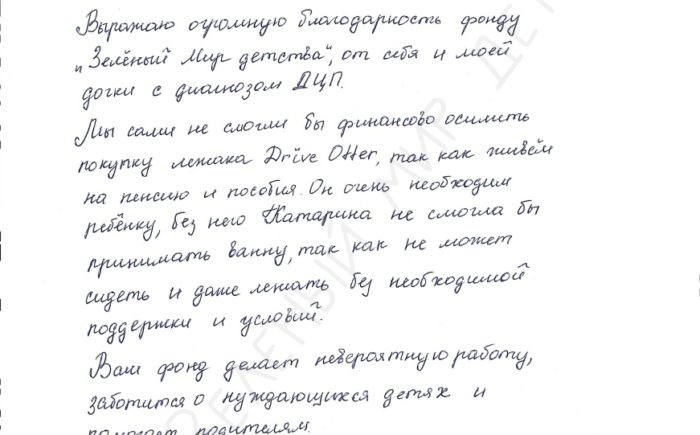 Выражаю огромную благодарность фонду
„Зелёный Мир детства“, от себя и моей
дочки с диагнозом ДЦП.
Мы сами не смогли бы финансово осилить
покупку лежака Drive Otter, так как живём
на пенсию и пособия. Он очень необходим
ребёнку, без него Катарина не смогла бы
принимать ванну, так как не может
сидеть и даже лежать без необходимой
поддержки и условий.
Ваш фонд делает невероятную работу,
заботится о нуждающихся детях и
помогает родителям.
ЗЕЛЕНЫЙ МИР ДЕТ